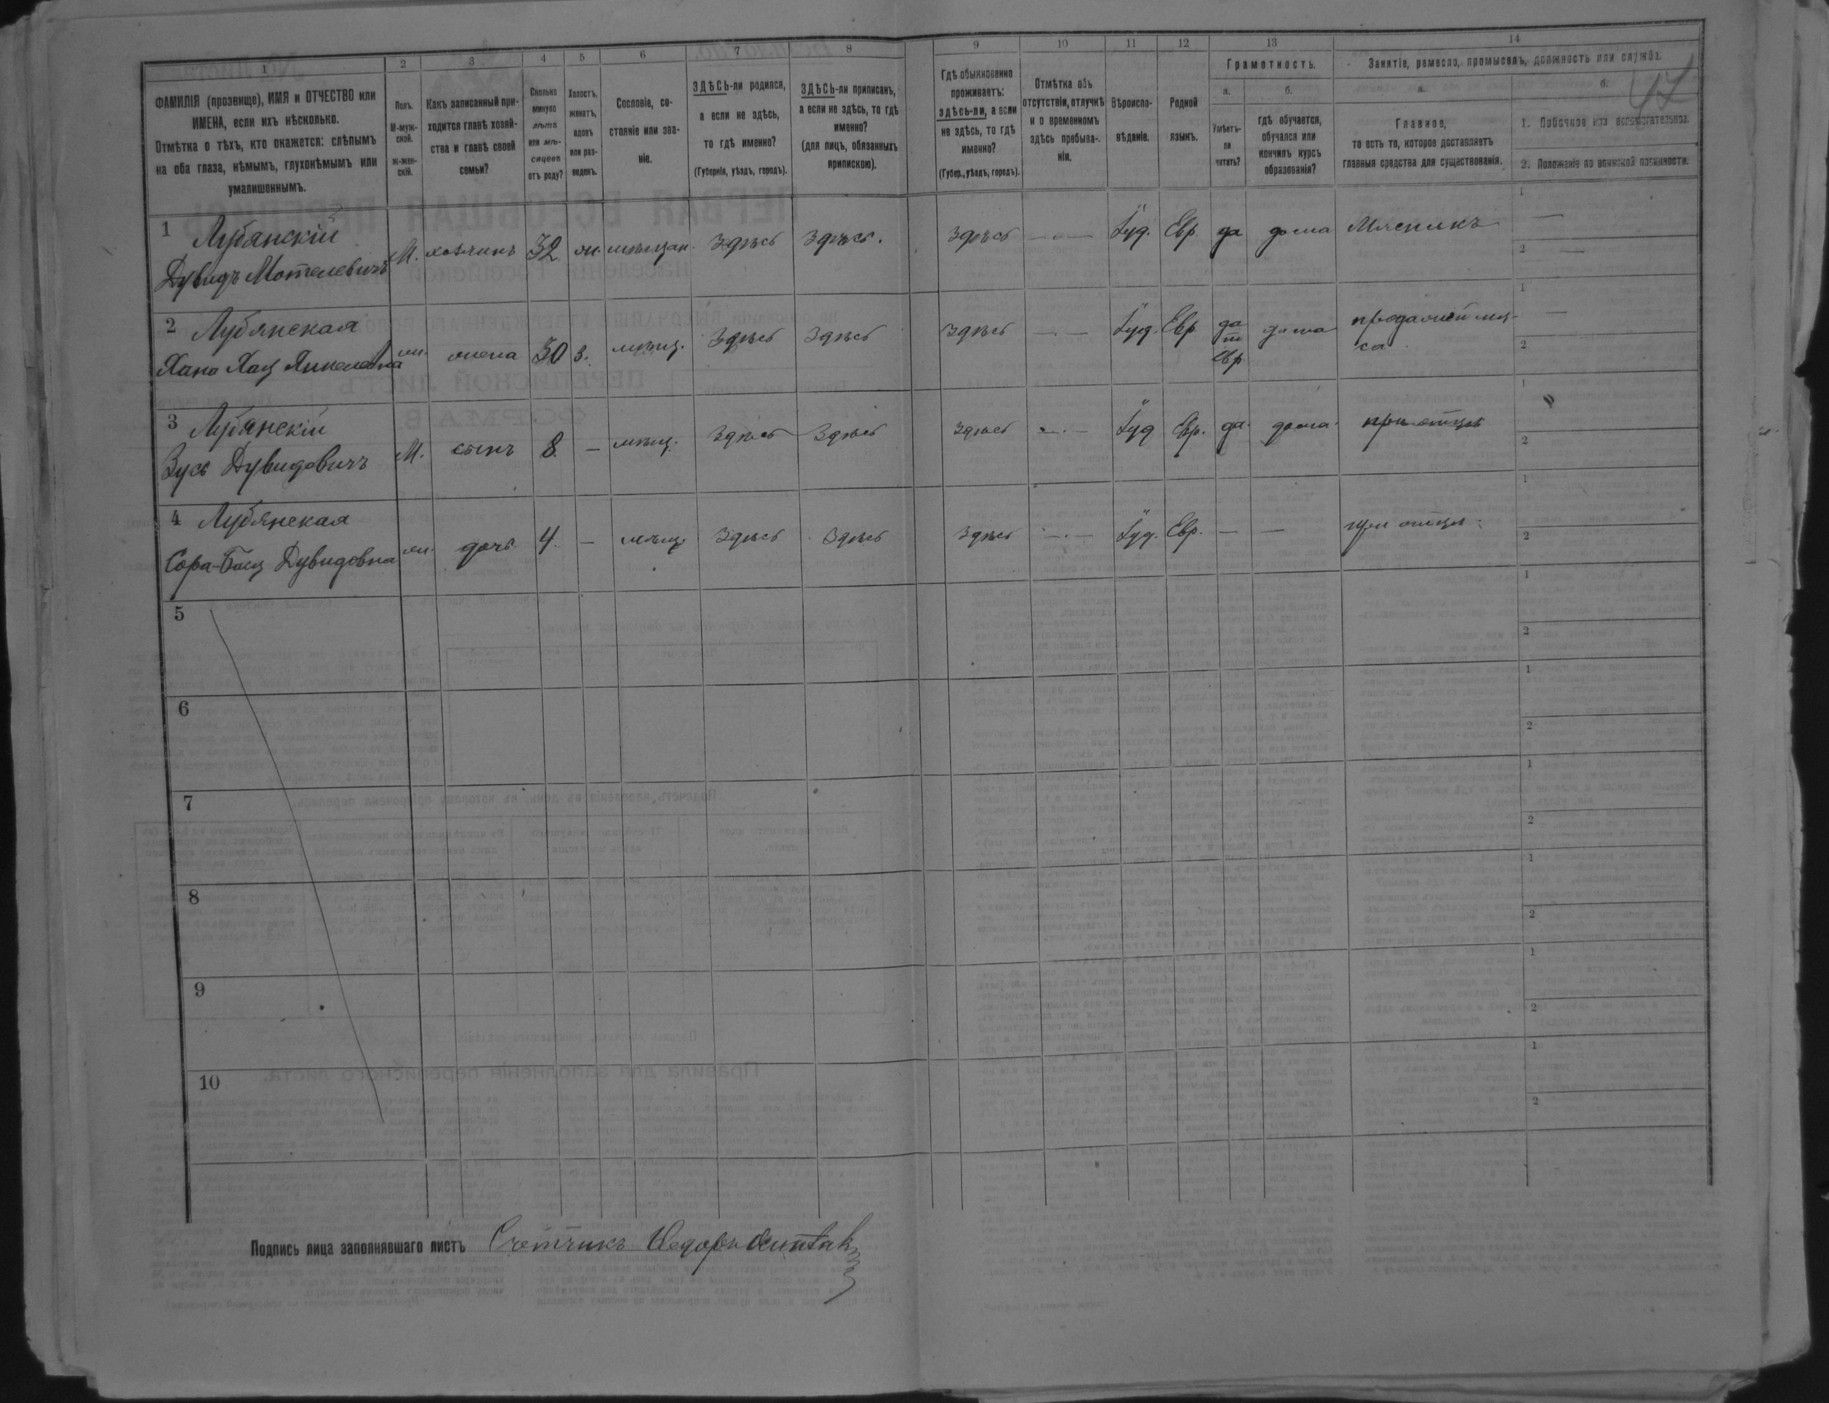 1 2 3 4 5 6 7 8 9 10 11 12 13 14
ФАМИЛІЯ (прозвище), ИМЯ и ОТЧЕСТВО или
ИМЕНА, если ихъ нѣсколько.
Отмѣтка о тѣхъ, кто окажется: слѣпымъ
на оба глаза, нѣмымъ, глухонѣмымъ или
умалишеннымъ.
Полъ.
М-муж-
ской.
Ж-жен-
скій.
Какъ записанный при-
ходится главѣ хозяй-
ства и главѣ своей
семьи?
Сколько
минуло
лѣтъ
или мѣ-
сяцевъ
отъ роду?
Холостъ,
женатъ,
вдовъ
или раз-
веденъ.
Сословіе, со-
стояніе или зва-
ніе.
ЗДѢСЬ-ли родился,
а если не здѣсь,
то гдѣ именно?
(Губернія, уѣздъ, городъ).
ЗДѢСЬ-ли приписанъ,
а если не здѣсь, то гдѣ
именно?
(для лицъ, обязанныхъ
припискою).
Гдѣ обыкновенно
проживаетъ:
здѣсь-ли, а если
не здѣсь, то гдѣ
именно?
(Губер., уѣздъ, городъ).
Отмѣтка объ
отсутствіи, отлучкѣ
и о временномъ
здѣсь пребыва-
ніи.
Вѣроиспо-
вѣданіе.
Родной
языкъ.
Грамотность.
а.
Умѣетъ-
ли
читать?
б.
гдѣ обучается,
обучался или
кончилъ курсъ
образованія?
Занятіе, ремесло, промыселъ, должность или служба.
47
а.
Главное,
то есть то, которое доставляетъ
главныя средства для существованія.
б.
1. Побочное или вспомогательное.
2. Положеніе по воинской повинности.
1 Лубянскій
Дувидъ Мотелевичъ М. хозяинъ 32 ж. мѣщан. Здѣсь Здѣсь. Здѣсь — Іуд. Евр. да дома Мясникъ
1 —
2 —
2 Лубянская
ж. жена 30 з. мѣщ. Здѣсь Здѣсь Здѣсь — — Іуд. Евр да
Евр дома
1 —
2
3 Лубянскій
Зусь Дувидовичъ М. сынъ 8 — мѣщ. Здѣсь Здѣсь Здѣсь — Іуд Евр. да дома при отцѣ
1
2
4 Лубянская
Сора-Бася Дувидовна ж. дочь 4. — мѣщ. Здѣсь Здѣсь Здѣсь — Іуд. Евр. — — при отцѣ
1
2
5
1
2
6
1
2
7
1
2
8
1
2
9
1
2
10
1
2
Подпись лица заполнявшаго листъ Счетчикъ